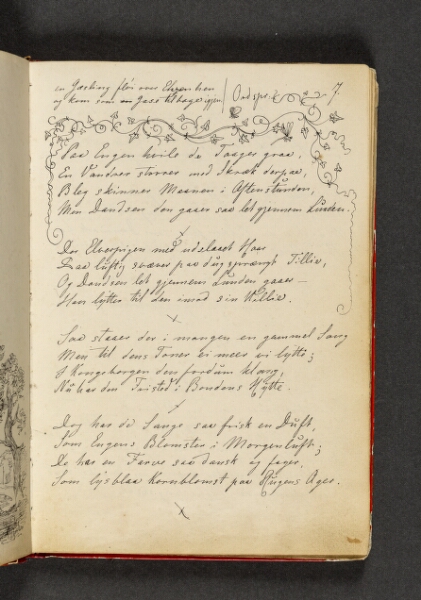 en Gæsling fløi over
og kom som en Gaas tilbage igjen. Ordspr. 7.
Paa Engen hvile de Taager graa,
En Vandrer stirrer med Skræk derpaa,
Bleg skinner Maanen i Aftenstunden,
Men Dandsen den gaaer saa let gjennem Lunden.
x
Der Elverpigen med udslaaet Haar
Saa luftig svæver paa dugsprængt Tillie,
Og Dandsen let gjennem Lunden gaaer —
Hver lytter til den imod sin Villie.
x
Saa staaer der i mangen en gammel Sang
Men til dens Toner ei meer vi lytte;
I Kongeborgen den fordum klang,
Nu har den Fristed i Bondens Hytte.
x
Dog har de Sange saa frisk en Duft,
Som Engens Blomster i Morgenluft;
De har en Farve saa dansk og fager,
Som lysblaa Kornblomst paa Rugens Ager.
x